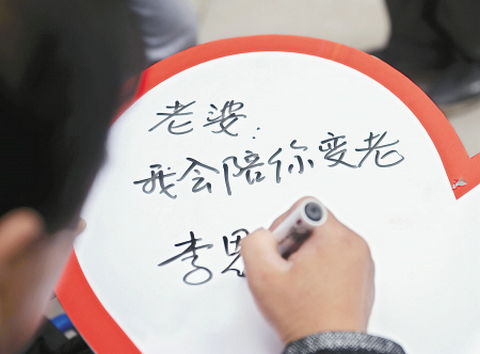 老婆:
我会陪你变老
李恩